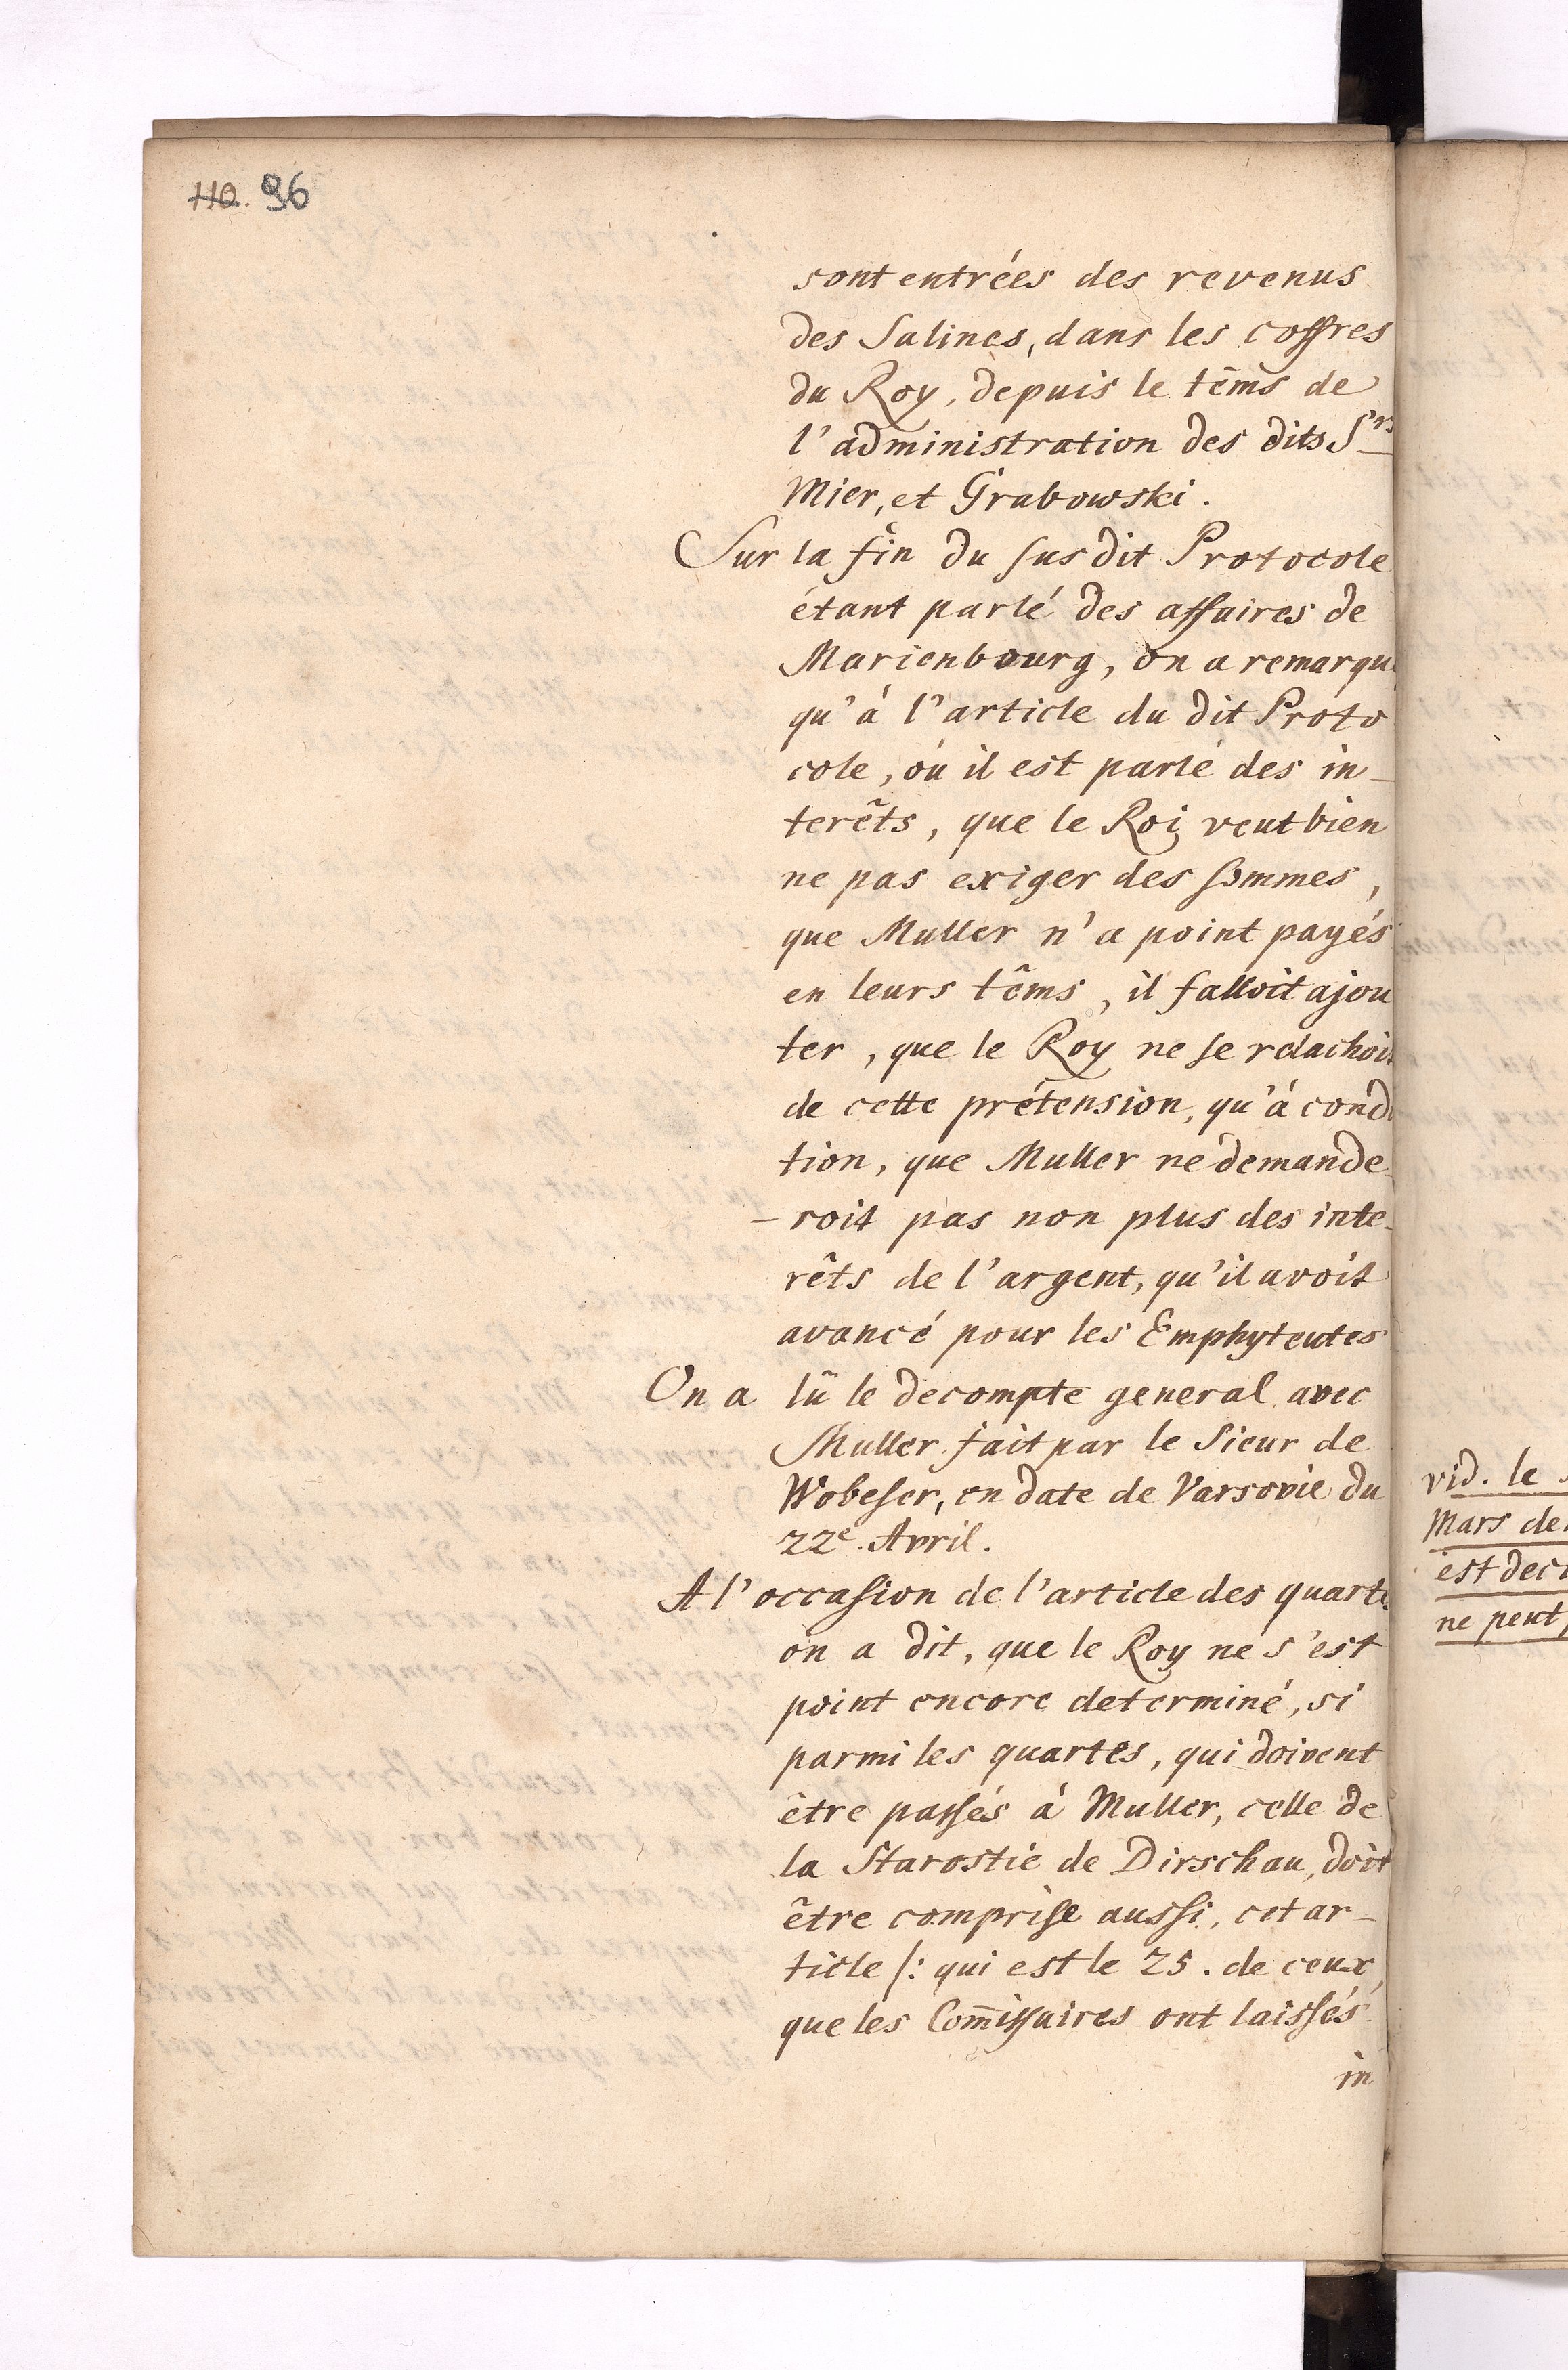 110. 96
sont entrées des revenus
des Salines, dans les coffres
du Roy, depuis le têms de
l'administration des dits Srs
Mier, et Grabowski.
Sur la fin du susdit Protocole
étant parlé des affaires de
Marienbourg, on a remarqué
qu'à l'article du dit Proto
cole, où il est parlé des in-
terêts, que le Roi veut bien
ne pas exiger des sommes,
que Muller n'a point payés
en leurs têms, il falloit ajou
ter, que le Roy ne se relachoit
de cette prétension, qu'à condi
tion, que Muller ne demande-
-roit pas non plus des inte-
rêts de l'argent, qu'il avoit
avancé pour les Emphyteutes
On a lû le decompte general avec
Muller fait par le Sieur de
Wobeser, en date de Varsovie du
22e. Avril.
A l'occasion de l'article des quartes
on a dit, que le Roy ne s'est
point encore determiné, si
parmi les quartes, qui doivent
être passés à Muller, celle de
la Starostie de Dirschau, doit
être comprise aussi, cet ar-
ticle /: qui est le 25. de ceux,
que les Com̄issaires ont laissés
in
vid. le
Mars de
est deci
ne peut